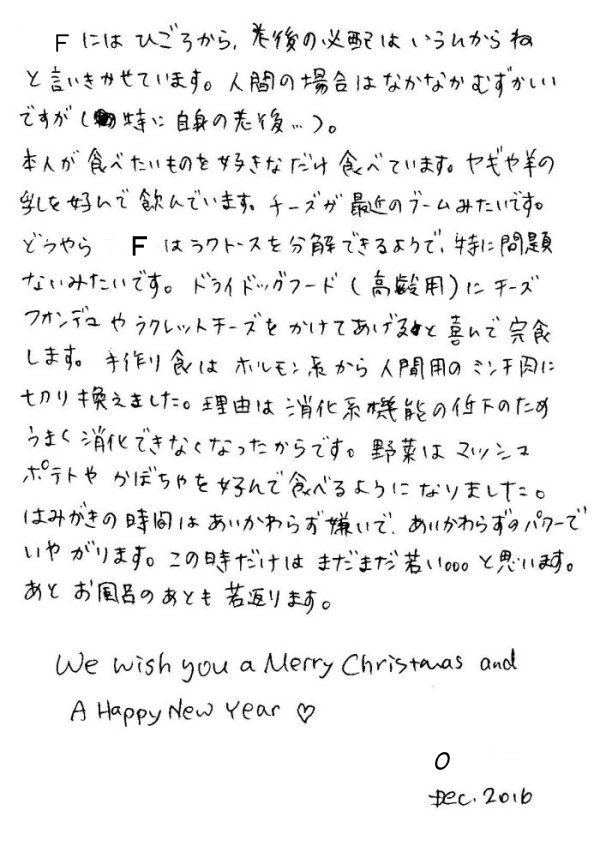 Fには ひごろから、老後の心配は いらんからね
と言いきかせています。人間の場合はなかなかむずかしい
ですが(特に自身の老後…)。
本人が食べたいものを好きなだけ食べています。ヤギや羊の
乳を好んで飲んでいます。チーズが最近のブームみたいです。
どうやら Fはラクトースを分解できるようで、特に問題
ないみたいです。ドライドッグフード(高齢用)にチーズ
フォンデュやラクレットチーズをかけてあげると喜んで完食
します。手作り食はホルモン系から人間用のミンチ肉に
切り換えました。理由は消化系機能の低下のため
うまく消化できなくなったからです。野菜はマッシュ
ポテトやかぼちゃを好んで食べるようになりました。
はみがきの時間はあいかわらず嫌いで、あいかわらずのパワーで
いやがります。この時だけはまだまだ若い。。。と思います。
あとお風呂のあとも若返ります。
We wish you a Merry Christmas and
A Happy New Year ♡
O
Dec. 2016